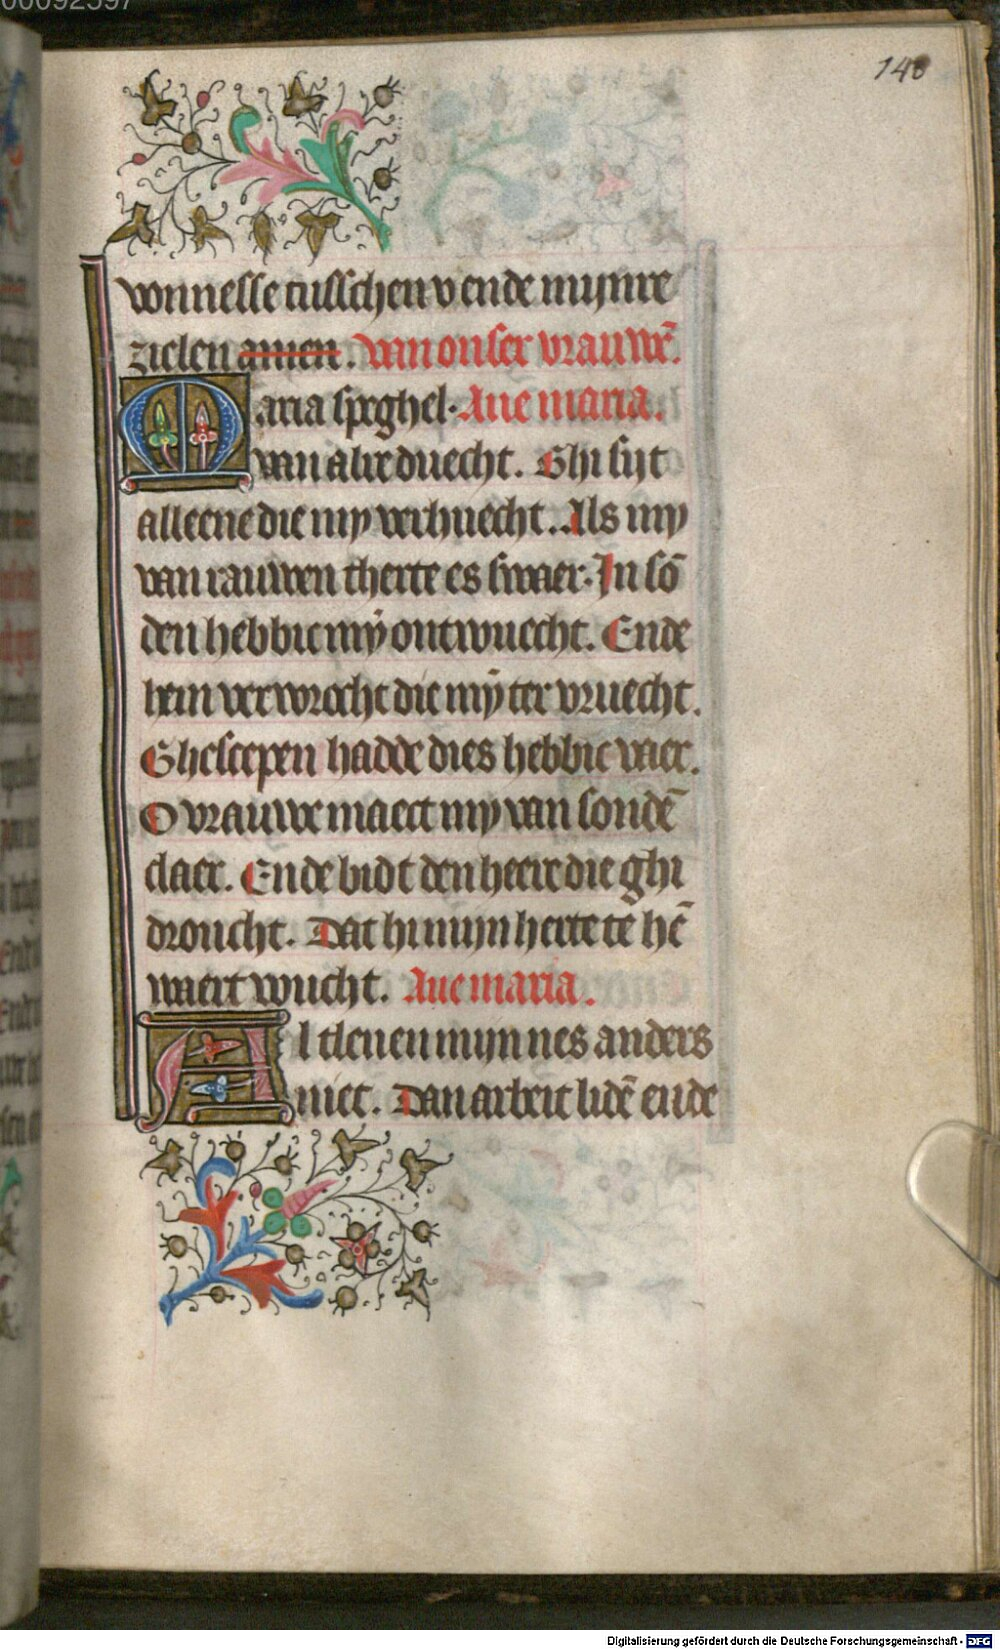 00092597
148
vonnesse tusschen v ende mijnre
zielen amen. Van onser vrauwē.
Maria speghel. Aue maria.
van alre duecht. Ghi sijt
alleene die my verhuecht. Als my
van rauwen therte es swaer. In sō
den hebbic mȳ ontwuecht. Ende
hem verwrocht die mȳ ter vruecht.
Ghescepen hadde dies hebbic vaer.
O vrauwe maect my van sondē
claer. Ende bidt den heere die ghi
droucht. Dat hi mijn herte te hē
waert wucht. Aue maria.
Al tleuen mijn nes anders
niet. Dan arbeit lidē ende
Digitalisierung gefördert durch die Deutsche Forschungsgemeinschaft - DFG